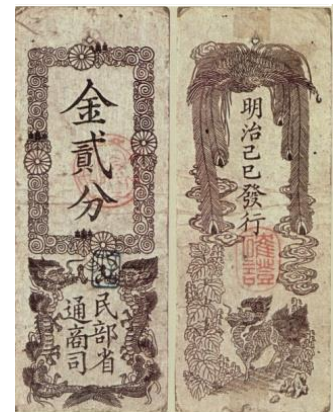 金貳分
民部省
通商司
明治己巳發行